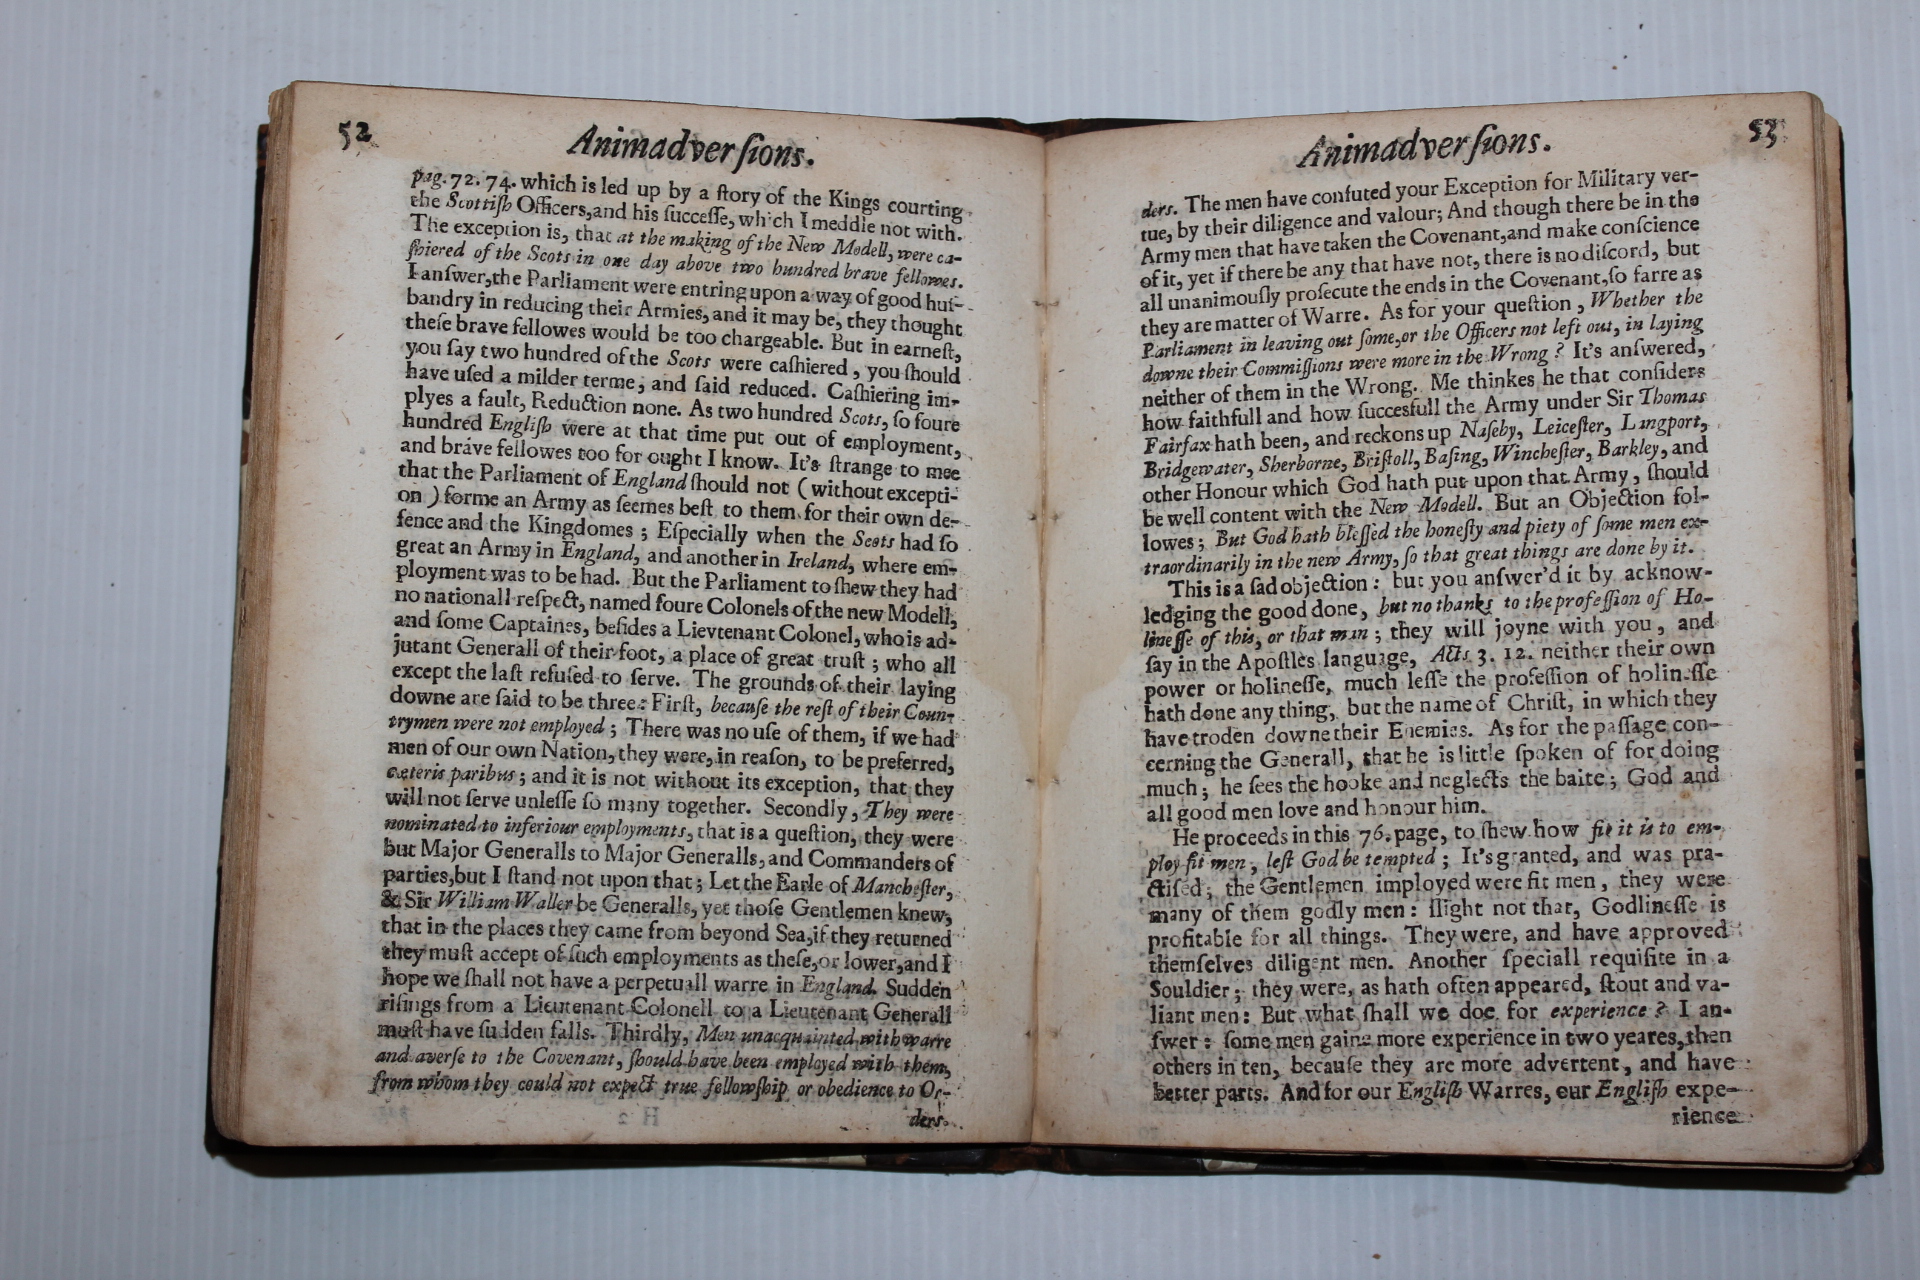 52
Animadverſions.
pag. 72. 74. which is led up by a ſtory of the Kings courting
the Scottiſh Officers, and his ſucceſſe, which I meddle not with.
The exception is, that at the making of the New Modell, were ca-
ſhiered of the Scots in one day above two hundred brave fellowes.
I anſwer, the Parliament were entring upon a way of good huſ-
bandry in reducing their Armies, and it may be, they thought
theſe brave fellowes would be too chargeable. But in earneſt,
you ſay two hundred of the Scots were caſhiered, you ſhould
have uſed a milder terme, and ſaid reduced. Caſhiering im-
plyes a fault, Reduction none. As two hundred Scots, ſo foure
hundred Engliſh were at that time put out of employment,
and brave fellowes too for ought I know. It's ſtrange to mee
that the Parliament of England ſhould not (without excepti-
on) forme an Army as ſeemes beſt to them for their own de-
fence and the Kingdomes; Eſpecially when the Scots had ſo
great an Army in England, and another in Ireland, where em-
ployment was to be had. But the Parliament to ſhew they had
no nationall reſpect, named foure Colonels of the new Modell,
and ſome Captaines, beſides a Lievtenant Colonel, who is ad-
jutant Generall of their foot, a place of great truſt; who all
except the laſt refuſed to ſerve. The grounds of their laying
downe are ſaid to be three: Firſt, becauſe the reſt of their Coun-
trymen were not employed; There was no uſe of them, if we had
men of our own Nation, they were, in reaſon, to be preferred,
cæteris paribus; and it is not without its exception, that they
will not ſerve unleſſe ſo many together. Secondly, They were
nominated to inferiour employments, that is a queſtion, they were
but Major Generalls to Major Generalls, and Commanders of
parties, but I ſtand not upon that; Let the Earle of Mancheſter,
& Sir William Waller be Generalls, yet thoſe Gentlemen knew,
that in the places they came from beyond Sea, if they returned
they muſt accept of ſuch employments as theſe, or lower, and I
hope we ſhall not have a perpetuall warre in England. Sudden
riſings from a Lieutenant Colonell to a Lieutenant Generall
muſt have ſudden falls. Thirdly, Men unacquainted with warre
and averſe to the Covenant, ſhould have been employed with them,
from whom they could not expect true fellowſhip or obedience to Or-
ders.
53
Animadverſions.
ders. The men have confuted your Exception for Military ver-
tue, by their diligence and valour; And though there be in the
Army men that have taken the Covenant, and make conſcience
of it, yet if there be any that have not, there is no diſcord, but
all unanimouſly proſecute the ends in the Covenant, ſo farre as
they are matter of Warre. As for your queſtion, Whether the
Parliament in leaving out ſome, or the Officers not left out, in laying
downe their Commiſſions were more in the Wrong? It's anſwered,
neither of them in the Wrong. Me thinkes he that conſiders
how faithfull and how ſuccesfull the Army under Sir Thomas
Fairfax hath been, and reckons up Naſeby, Leiceſter, Langport,
Bridgewater, Sherborne, Briſtoll, Baſing, Wincheſter, Barkley, and
other Honour which God hath put upon that Army, ſhould
be well content with the New Modell. But an Objection fol-
lowes; But God hath bleſſed the honeſty and piety of ſome men ex-
traordinarily in the new Army, ſo that great things are done by it.
This is a ſad objection: but you anſwer'd it by acknow-
ledging the good done, but no thanks to the profeſſion of Ho-
lineſſe of this, or that man; they will joyne with you, and
ſay in the Apoſtles language, Acts 3. 12. neither their own
power or holineſſe, much leſſe the profeſſion of holineſſe
hath done any thing, but the name of Chriſt, in which they
have troden downe their Enemies. As for the paſſage con-
cerning the Generall, that he is little ſpoken of for doing
much; he ſees the hooke and neglects the baite; God and
all good men love and honour him.
He proceeds in this 76. page, to ſhew how fit it is to em-
ploy fit men, leſt God be tempted; It's granted, and was pra-
ctiſed; the Gentlemen imployed were fit men, they were
many of them godly men: ſlight not that, Godlineſſe is
profitable for all things. They were, and have approved
themſelves diligent men. Another ſpeciall requiſite in a
Souldier; they were, as hath often appeared, ſtout and va-
liant men: But what ſhall we doe for experience? I an-
ſwer: ſome men gaine more experience in two yeares, then
others in ten, becauſe they are more advertent, and have
better parts. And for our Engliſh Warres, our Engliſh expe-
rience